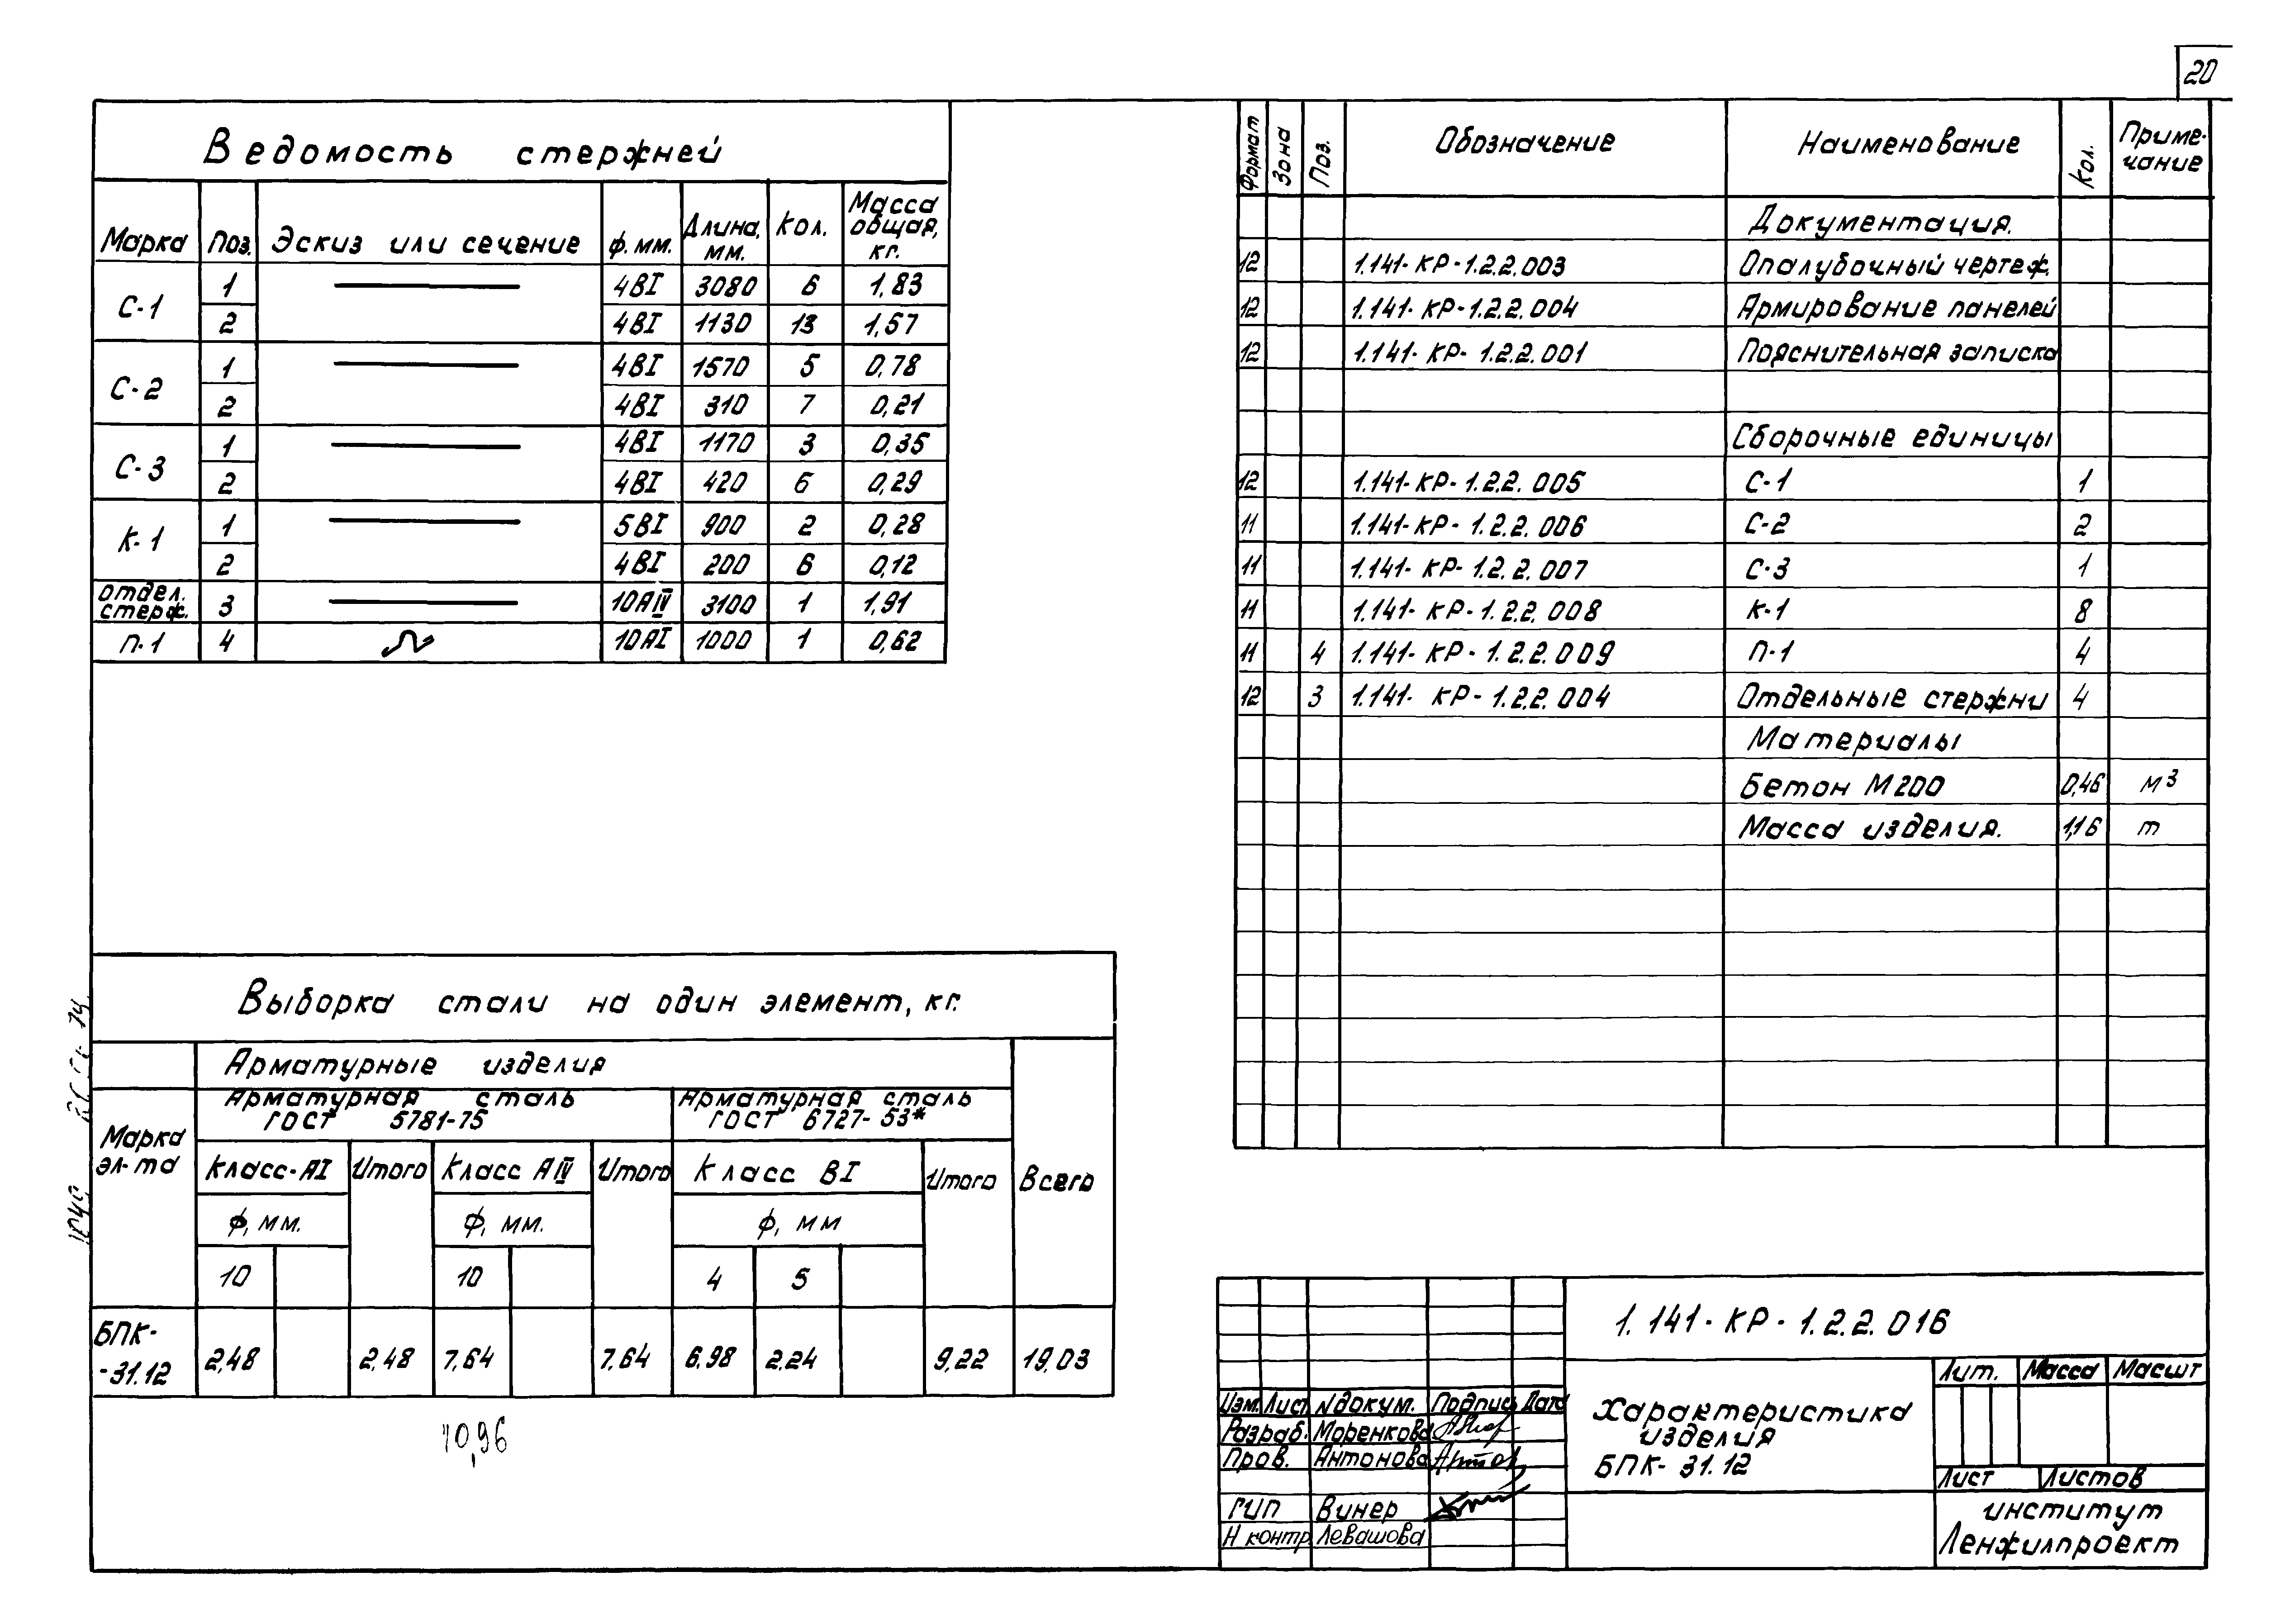 20
Ведомость стержней
Марка Поз. Эскиз или сечение ф. мм. Длина, мм. Кол. Масса общая, кг.
С-1 1 4ВI 3080 6 1,83
2 4ВI 1130 13 1,57
С-2 1 4ВI 1570 5 0,78
2 4ВI 310 7 0,21
С-3 1 4ВI 1170 3 0,35
2 4ВI 420 6 0,29
К-1 1 5ВI 900 2 0,28
2 4ВI 200 6 0,12
отдел. стерж. 3 10АIV 3100 1 1,91
П-1 4 10АI 1000 1 0,62
Формат Зона Поз. Обозначение Наименование Кол. Приме-чание
Документация.
12 1.141-КР-1.2.2.003 Опалубочный чертеж.
12 1.141-КР-1.2.2.004 Армирование панелей
12 1.141-КР-1.2.2.001 Пояснительная записка
Сборочные единицы
12 1.141-КР-1.2.2.005 С-1 1
11 1.141-КР-1.2.2.006 С-2 2
11 1.141-КР-1.2.2.007 С-3 1
11 1.141-КР-1.2.2.008 К-1 8
11 4 1.141-КР-1.2.2.009 П-1 4
12 3 1.141-КР-1.2.2.004 Отдельные стержни 4
Материалы
Бетон М200 0,46 м3
Масса изделия. 1,16 т
Выборка стали на один элемент, кг.
Арматурные изделия
Арматурная сталь ГОСТ 5781-75
Арматурная сталь ГОСТ 6727-53*
Марка эл-та
Класс-АI Итого Класс АIV Итого Класс ВI Итого Всего
ф, мм. ф, мм. ф, мм
10 10 4 5
БПК-
-31.12 2,48 2,48 7,64 7,64 6,98 2,24 9,22 19,03
10,96
1.141-КР-1.2.2.016
Изм. Лист Nдокум. Подпись Дата
Разраб. Моренкова
Пров. Антонова
ГИП Винер
Н контр. Левашова
Характеристика
изделия
БПК-31.12
Лит. Масса Масшт
Лист Листов
институт
Ленжилпроект